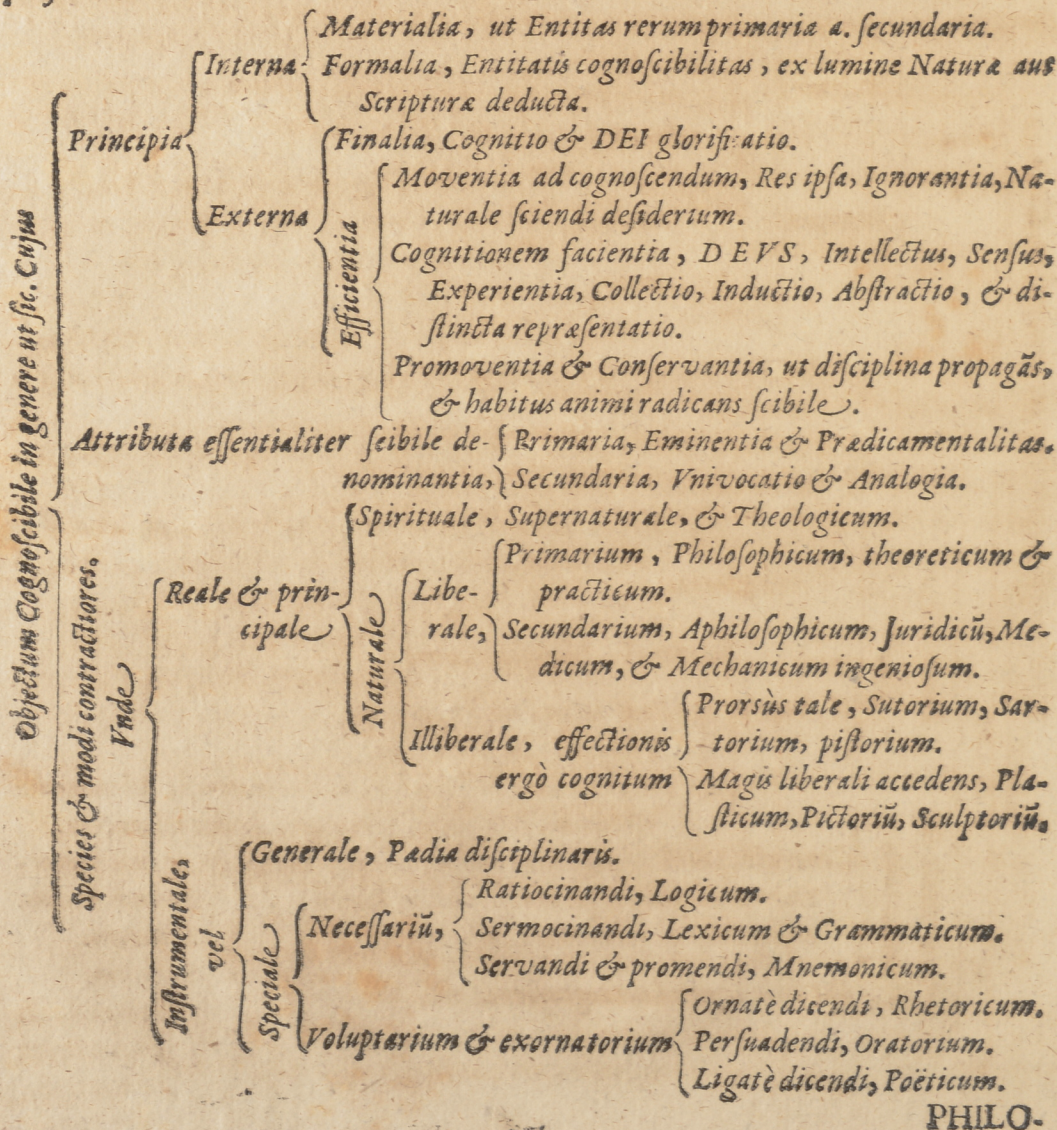 Materialia, ut Entitas rerum primaria a. ſecundaria.
Interna
Formalia, Entitatis cognoſcibilitas, ex lumine Naturæ aut
Scripturæ deducta.
Principia
Finalia, Cognitio & DEI glorificatio.
Moventia ad cognoſcendum, Res ipſa, Ignorantia, Na-
turale ſciendi deſiderium.
Externa
Efficientia
Cognitionem facientia, DEVS, Intellectus, Senſus,
Experientia, Collectio, Inductio, Abſtractio, & di-
ſtincta repræſentatio.
Promoventia & Conſervantia, ut diſciplina propagās,
& habitus animi radicans ſcibile.
Objectum Cognoſcibile in genere ut ſic. Cujus
Attributa eſſentialiter ſcibile de-
nominantia,
Primaria, Eminentia & Prædicamentalitas.
Secundaria, Vnivocatio & Analogia.
Species & modi contractiores.
Vnde
Spirituale, Supernaturale, & Theologicum.
Reale & prin-
cipale
Naturale
Libe-
rale,
Primarium, Philoſophicum, theoreticum &
practicum.
Secundarium, Aphiloſophicum, Juridicū, Me-
dicum, & Mechanicum ingenioſum.
Illiberale, effectionis
ergò cognitum
Prorsùs tale, Sutorium, Sar-
torium, piſtorium.
Magis liberali accedens, Pla-
ſticum, Pictoriū, Sculptoriū.
Inſtrumentale,
vel
Generale, Pædia diſciplinaris.
Speciale
Neceſſariū,
Ratiocinandi, Logicum.
Sermocinandi, Lexicum & Grammaticum.
Servandi & promendi, Mnemonicum.
Voluptarium & exornatorium
Ornatè dicendi, Rhetoricum.
Perſuadendi, Oratorium.
Ligatè dicendi, Poëticum.
PHILO-